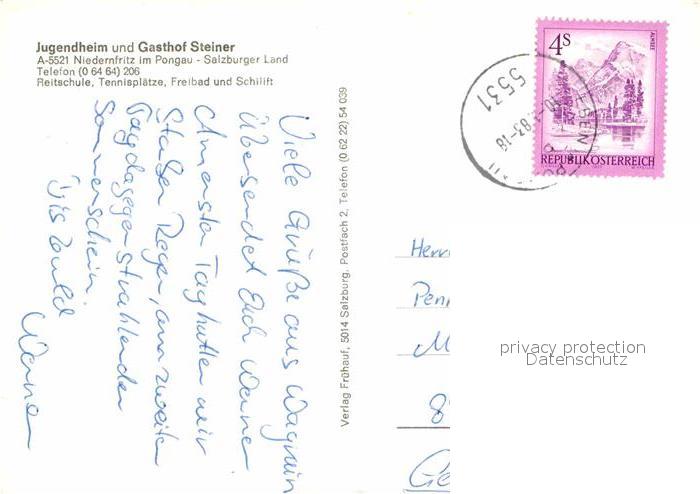 Jugendheim und Gasthof Steiner
A-5521 Niedernfritz im Pongau - Salzburger Land
Telefon (0 64 64) 206
Reitschule, Tennisplätze, Freibad und Schilift
Viele Grüße aus Wagrain
übersendet Euch Werner
Am ersten Tag hatten wir
starken Regen, am zweiten
Tag dagegen strahlenden
Sonnenschein.
Bis bald
Werner
Verlag Frühauf, 5014 Salzburg, Postfach 2, Telefon (0 62 22) 54 039
4S
ALMSEE
REPUBLIK ÖSTERREICH
5531
83-18
Herr
Pen
M
8
Ge
privacy protection
Datenschutz